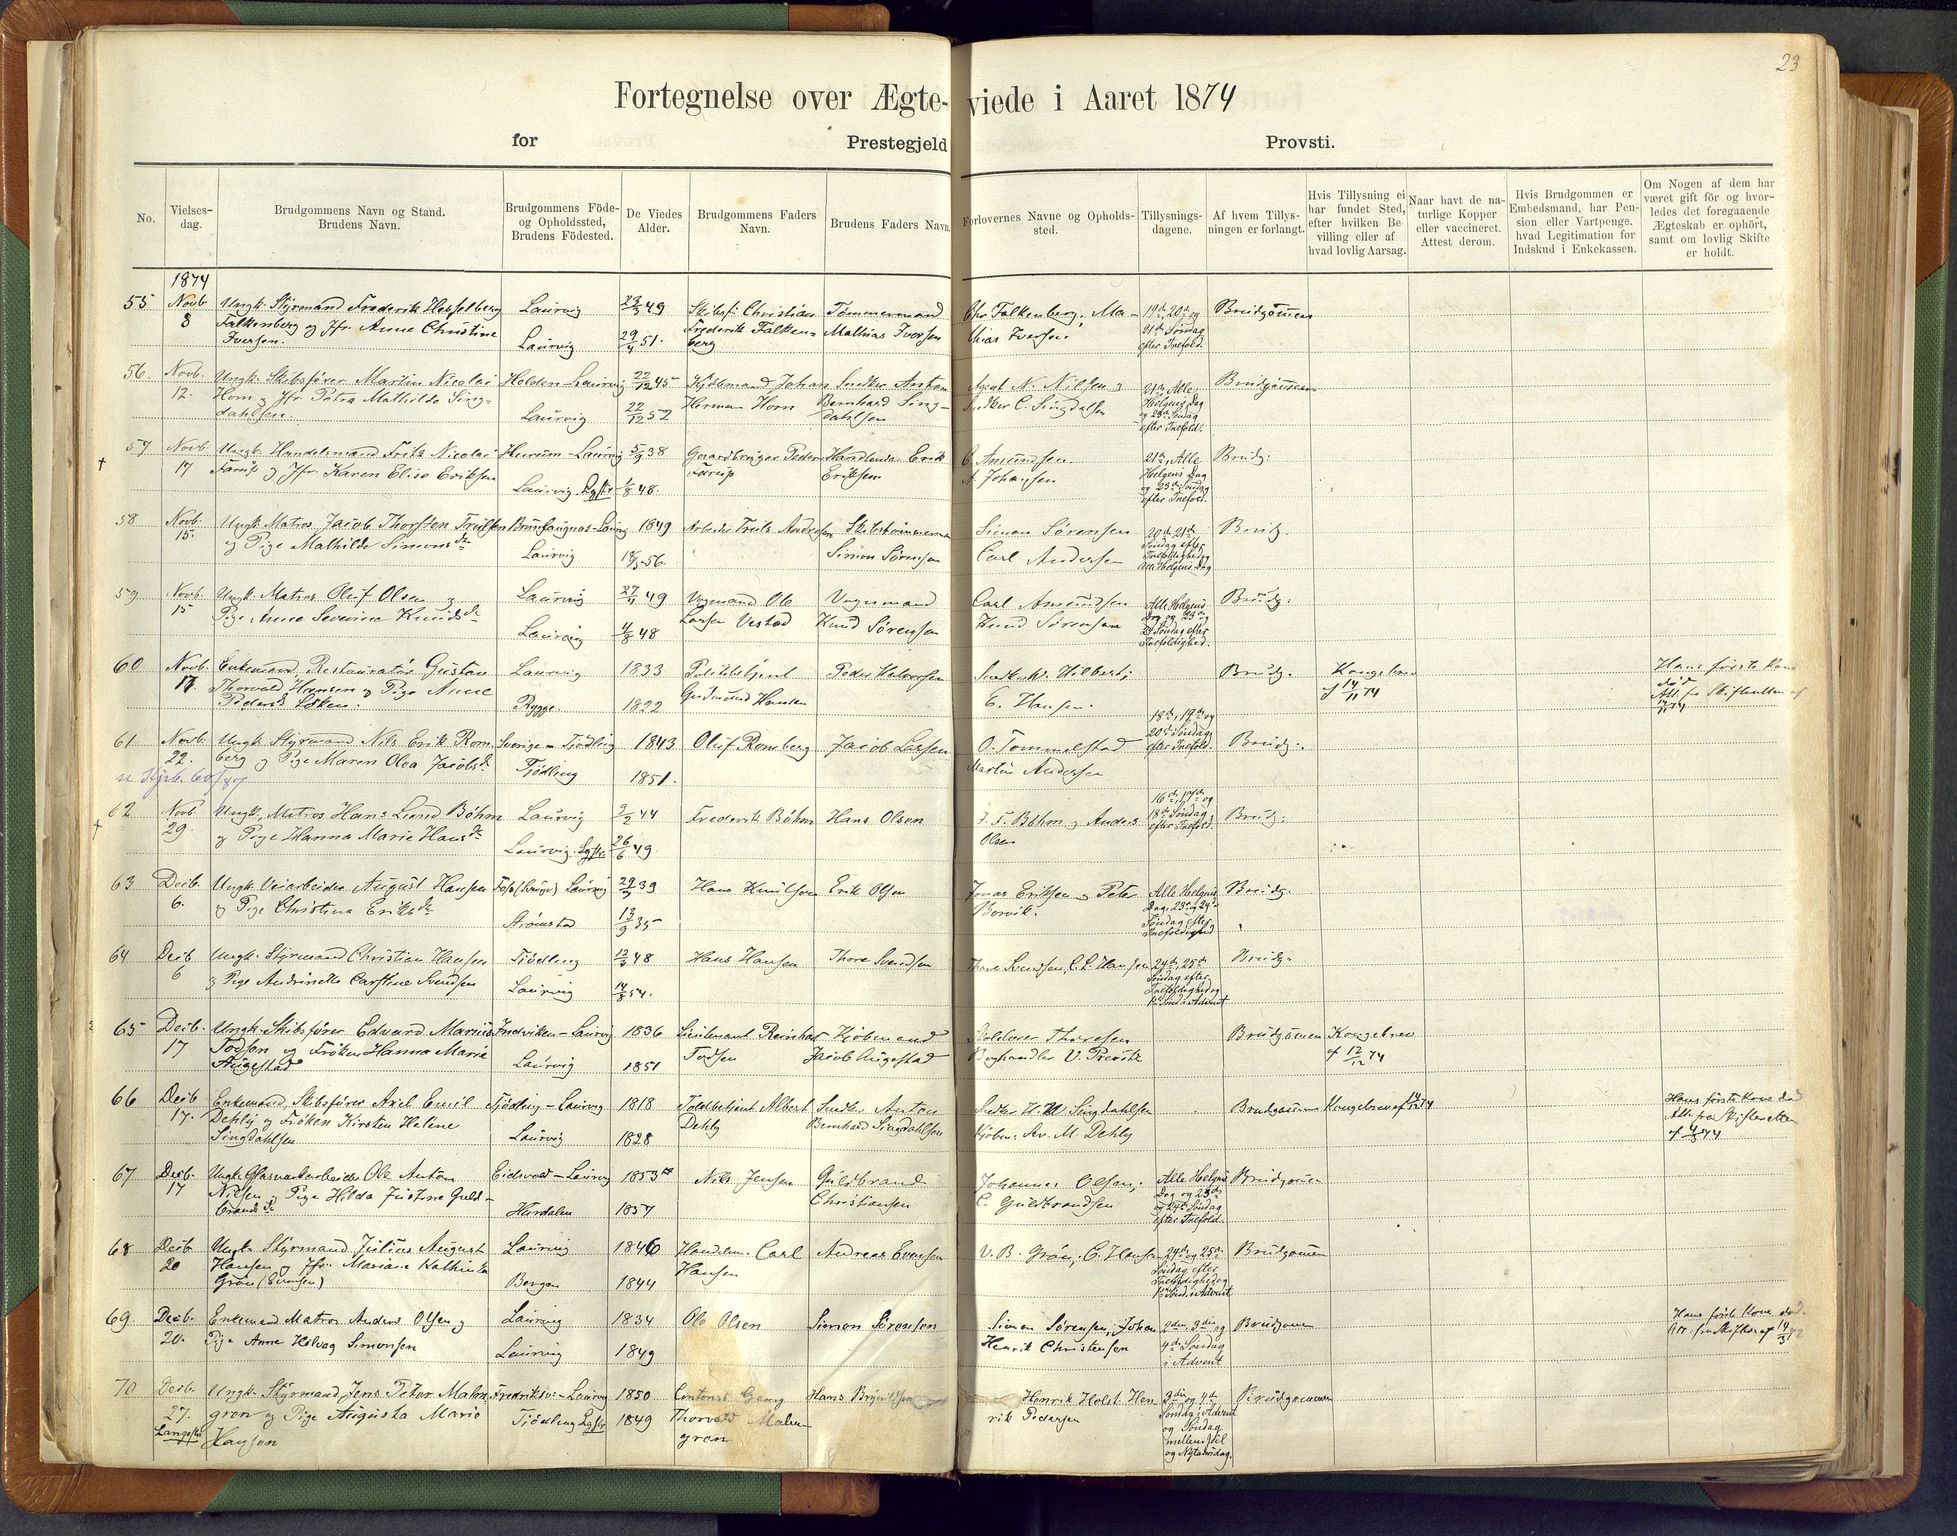 23
Fortegnelse over Ægteviede i Aaret 1874
for Prestegjeld Provsti.
No.
Vielses-
dag.
Brudgommens Navn og Stand.
Brudens Navn.
Brudgommens Føde-
og Opholdssted,
Brudens Fødested.
De Viedes
Alder.
Brudgommens Faders
Navn.
Brudens Faders Navn.
Forlovernes Navne og Opholds-
sted.
Tillysnings-
dagene.
Af hvem Tillys-
ningen er forlangt.
Hvis Tillysning ei
har fundet Sted,
efter hvilken Be-
villing eller af
hvad lovlig Aarsag.
Naar havt de na-
turlige Kopper
eller vaccineret.
Attest derom.
Hvis Brudgommen er
Embedsmand, har Pen-
sion eller Vartpenge,
hvad Legitimation for
Indskud i Enkekassen.
Om Nogen af dem har
været gift før og hvor-
ledes det foregaaende
Ægteskab er ophørt,
samt om lovlig Skifte
er holdt.
1874
55 Novb. 8
Ungk. Styrmand Frederik Hesselberg
Falkenberg og Jfr. Anne Christine
Iversen.
Laurvig
Laurvig
23/3 49
29/4 51.
Skibsf. Christian
Frederik Falken-
berg
Tømmermand
Mathias Iversen
Chr. Falkenberg, Ma-
thias Iversen.
19de, 20de og
21de Søndag
efter Trefold.
Brudgommen
56. Novb. 12.
Ungk. Skibsfører Martin Nicolai
Horn og Jfr. Petra Mathilde Sing-
dahlsen
Holden-Laurvig
Laurvig
22/12 45
22/12 52
Kjøbmand Johan
Herman Horn
Snedker Anton
Bernhard Sing-
dahlsen
Agent N. Nilsen og
Snedker C. Singdalsen
21de, Alle
Helgens Dag
og 23de Søndag
efter Trefold.
Brudgommen
57 Novb. 17
Ungk. Handelsmand Fritz Nicolai
Farup og Jfr. Karen Elise Eriksen
Hurum-Laurvig
Laurvig Lgstr.
5/9 38
1/8 48.
Gaardbruger Peder
Farup
Handlende Erik
Eriksen
C. Amundsen
A. Johansen
21de, Alle
Helgens Dag
og 23de Søndag
efter Trefold.
Brudg.
58 Novb. 15.
Ungk. Matros Jacob Thorsten Trulsen
og Pige Mathilde Simonsdr
Laurvig
1849
18/5 56.
Arbeider Truls Andersen
Skibstømmermand
Simon Sørensen
Simon Sørensen
Carl Andersen
20de 21de
Søndag efter
Trefoldighed og
Alle Helgens Dag
Brudg.
59 Novb. 15
Ungk. Matros Oluf Olsen og
Pige Anne Severine Knudsdr
Laurvig
Laurvig
27/4 49
4/8 48
Vognmand Ole
Larsen Vestad
Vognmand
Knud Sørensen
Carl Amundsen
Knud Sørensen
Alle Helgens
Dag og 23de og
24 Søndag efter
Trefoldighed.
Brudg.
60 Novb. 17
Enkemand, Restauratør Gustav
Thorvald Hansen og Pige Anne
Laurvig
Rygge.
1833
1822
Politibetjent
Gudmund Hansen
Peder Halvorsen
E. Hansen.
Brudg.
Kongebrev
af 14/11 74
Hans første Kone
død
Att. fra Skifteretten af
61 Novb. 22.
Ungk. Styrmand Nils Erik Rom-
berg og Pige Maren Olea Jacobsdr
Sverige - Tjødling
Tjødling
1843
1851.
Oluf Romberg
Jacob Larsen
O. Tommelstad
Martin Andersen
18de, 19de og
20de Søndag
efter Trefold.
Brudg.
62 Novb 29
Ungk. Matros Hans Lund Bøhm
og Pige Hanna Marie Hansdr
Laurvig
Laurvig Lgstr.
9/2 44
26/6 49.
Frederik Bøhm
Hans Olsen
J. F. Bøhm og Anders
Olsen
16de, 17de og
18de Søndag
efter Trefold.
Brudg.
63 Decb. 6.
Ungk. Veiarbeider August Hansen
og Pige Christina Eriksdr
Laurvig
Strømstad
29/9 39
13/9 35
Hans Knudsen
Erik Olsen
Jonas Eriksen og Peter
Borvik.
Alle Helgens
Dag, 23de og 24de
Søndag efter
Trefoldighed
Brudg.
64 Decb 6
Ungk. Styrmand Christian Hansen
og Pige Andrinette Carstine Svendsen
Tjødling
Laurvig
12/3 48
14/8 54.
Hans Hansen
Thore Svendsen
Thore Svendsen, C. P. Hansen
24de, 25de
Søndag efter
Trefoldighed og
1ste Sønd. i Advent
Brudg.
65 Decb. 17
Ungk. Skibsfører Edvard Marius
Todsen og Frøken Hanna Marie
Augestad
Fredviken-Laurvig
Laurvig
1836
1851
Lieutenant Reinhar
Todsen
Kjøbmand
Jacob Augestad
Boghandler V. Previtz
Brudgommen
Kongebrev
af 12/12 74
66 Decb 17.
Enkemand, Skibsfører Axel Emil
Dehly og Frøken Kirsten Helene
Singdahlsen
Tjødling-Laurvig
Laurvig
1818
1828
Toldbetjent Albert
Dehly
Snedker Anton
Bernhard Singdahlsen
Snedker H. M. Singdahlsen
Kjøbm. Sev. M. Dehly
Brudgommen
Kongebrev af
Hans første Kone død
Att. fra Skifteretten
67 Decb. 17
Ungk. Glasværkarbeider Ole Anton
Nilsen og Pige Hilda Justine Guld-
brandsdr
Eidsvold-Laurvig
Hurdalen
1853
1857
Nils Jensen
Guldbrand
Christiansen
Johannes Olsen,
C. Guldbrandsen
Alle Helgens
Dag og 23de
og 24de Søndag
efter Trefold.
Brudgommen
68 Decb. 20
Ungk. Styrmand Julius August
Hansen og Jfr. Mariane Kathinka
Grøn (Evensen)
Laurvig
Bergen
1846
1844
Handelsm. Carl
Hansen
Andreas Evensen
V. B. Grøn, C. Hansen
24de og 25de
Søndag efter
Trefoldighed og
1ste Sønd. i Advent
Brudgommen
69. Decb. 20.
Enkemand Matros Anders Olsen og
Pige Anne Helvog Simonsen
Laurvig
Laurvig
1834
1849
Ole Olsen
Simon Sørensen
Simon Sørensen, Johan
Henrik Christensen
2den, 3die og
4de Søndag
i Advent
Brudgommen
Hans første Kone død.
70 Decb. 27. Langestr.
Ungk. Styrmand Jens Peter Malm-
gren og Pige Augusta Marie
Hansen
Fredriksv.-Laurvig
Tjødling Lgstr.
1850
1849
Contorist Georg
Thorvald Malm-
gren
Hans Brynildsen
Henrik Holst Hen-
rik Pedersen
3die og 4de
Søndag i Advent
og Søndag
mellem Jul
og Nytaarsdag.
Brudgommen